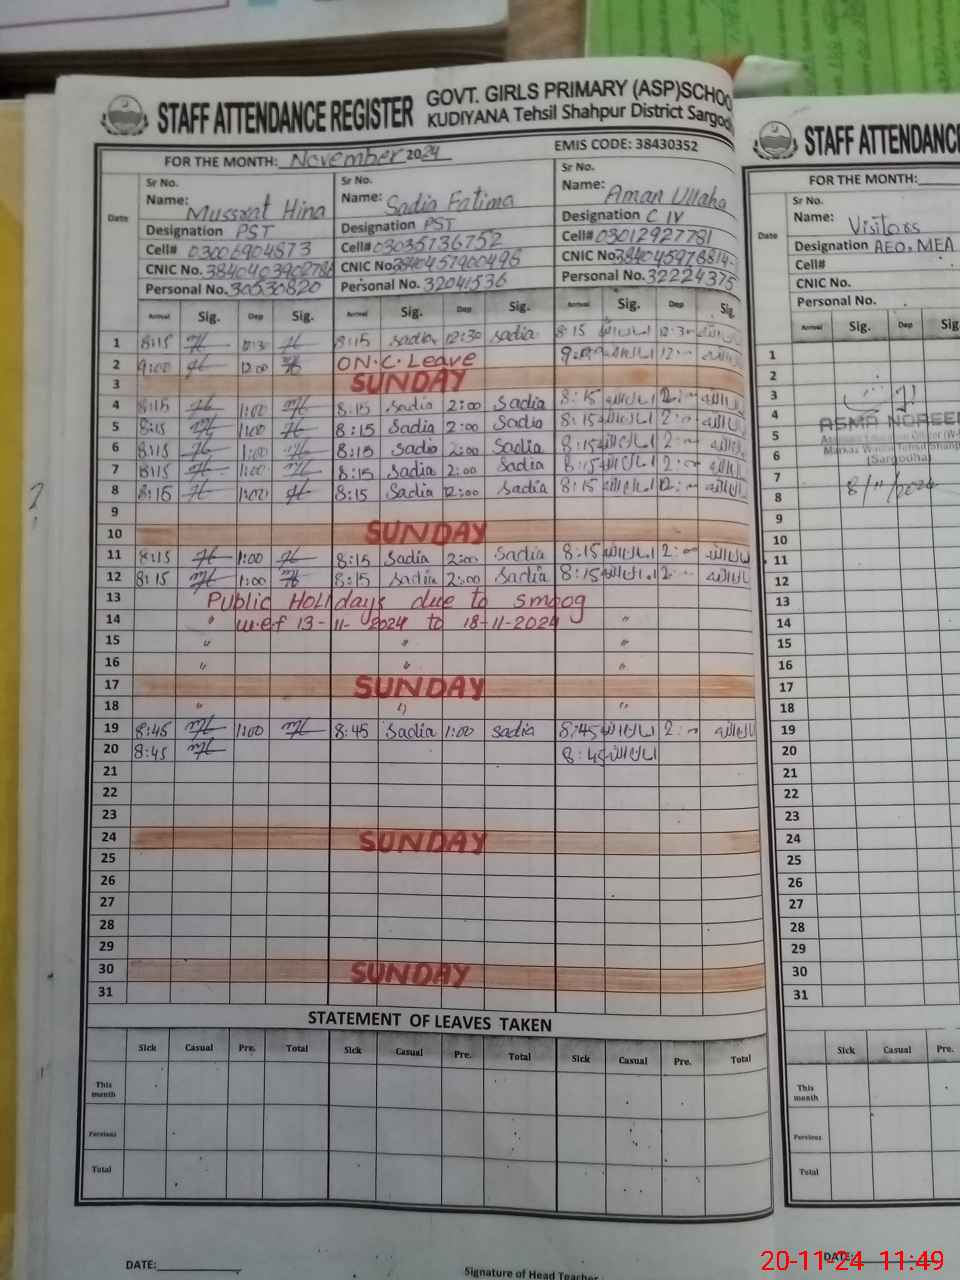 STAFF ATTENDANCE REGISTER
GOVT. GIRLS PRIMARY (ASP)SCHOO
KUDIYANA Tehsil Shahpur District Sargod
FOR THE MONTH: November 2024
EMIS CODE: 38430352
Date
Sr No.
Name: Mussrat Hina
Designation PST
Cell# 03006904573
CNIC No.
Personal No. 30530820
Sr No.
Name: Sadia Fatima
Designation PST
Cell# 03035736752
CNIC No. 3840457900496
Personal No. 32041536
Sr No.
Name: Aman Ullaha
Designation C IV
Cell# 03012927781
CNIC No.
Personal No. 32224375
Arrival Sig. Dep Sig. Arrival Sig. Dep Sig. Arrival Sig. Dep Sig.
1 8:15 12:30 8:15 sadia 12:30 sadia 8:15 امان اللہ 12:30 امان اللہ
2 9:00 12:00 ON.C.Leave 9:00 امان اللہ 12:00 امان اللہ
3 SUNDAY
4 8:15 1:00 8:15 Sadia 2:00 Sadia 8:15 امان اللہ 2:00 امان اللہ
5 8:15 1:00 8:15 Sadia 2:00 Sadia 8:15 امان اللہ 2:00 امان اللہ
6 8:15 1:00 8:15 Sadia 2:00 Sadia 8:15 امان اللہ 2:00 امان اللہ
7 8:15 1:00 8:15 Sadia 2:00 Sadia 8:15 امان اللہ 2:00 امان اللہ
8 8:15 8:15 Sadia 12:00 Sadia 8:15 امان اللہ 12:00 امان اللہ
9
10 SUNDAY
11 8:15 1:00 8:15 Sadia 2:00 Sadia 8:15 امان اللہ 2:00 امان اللہ
12 8:15 1:00 8:15 Sadia 2:00 Sadia 8:15 امان اللہ 2:00 امان اللہ
13 Public Holidays due to smoog
14 " w.e.f 13-11-2024 to 18-11-2024 "
15 " " "
16 " " "
17 SUNDAY
18 " " "
19 8:45 1:00 8:45 Sadia 1:00 sadia 8:45 امان اللہ 2:00 امان اللہ
20 8:45 8:45 امان اللہ
21
22
23
24 SUNDAY
25
26
27
28
29
30 SUNDAY
31
STATEMENT OF LEAVES TAKEN
Sick Casual Pre. Total Sick Casual Pre. Total Sick Casual Pre. Total
This month
Pervious
Total
DATE:
Signature of Head Teacher
STAFF ATTENDANC
FOR THE MONTH:
Date
Sr No.
Name: Visitors
Designation AEO, MEA
Cell#
CNIC No.
Personal No.
Arrival Sig. Dep Sig
1
2
3
4
5
6
7
8
9
10
11
12
13
14
15
16
17
18
19
20
21
22
23
24
25
26
27
28
29
30
31
ASMA NOREEN
(Sargodha)
8/11/2024
Sick Casual Pre.
This month
Pervious
Total
DATE:
20-11-24 11:49